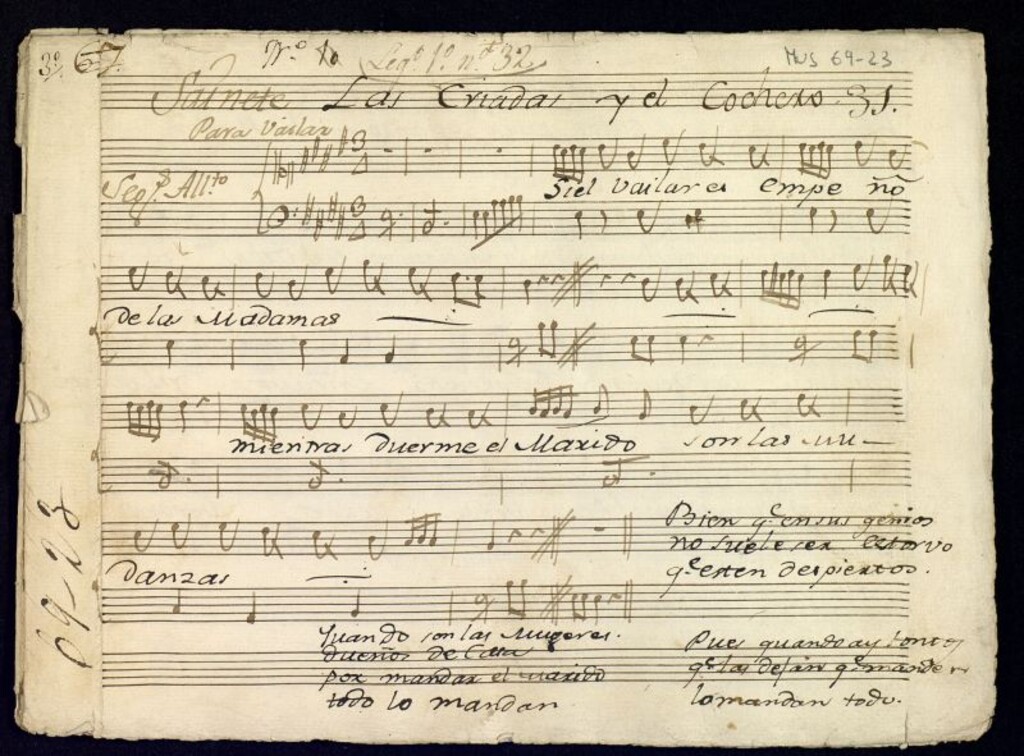 3º 67. Nº 10 Legº 1º nº 32 MUS 69-23
Sainete Las Criadas y el Cochero 31.
Para vailar
Segs. Allto
Siel vailar es empe ño
de las Madamas
mientras duerme el Marido son las mu-
danzas
Bien qe. en sus genios
no suele ser estorvo
qe. esten despiertos.
69-23
Quando son las Mugeres.
dueños de Casa
por mandar el Marido
todo lo mandan
Pues quando ay tontos
qe. las dejan qe. manden
lo mandan todo.